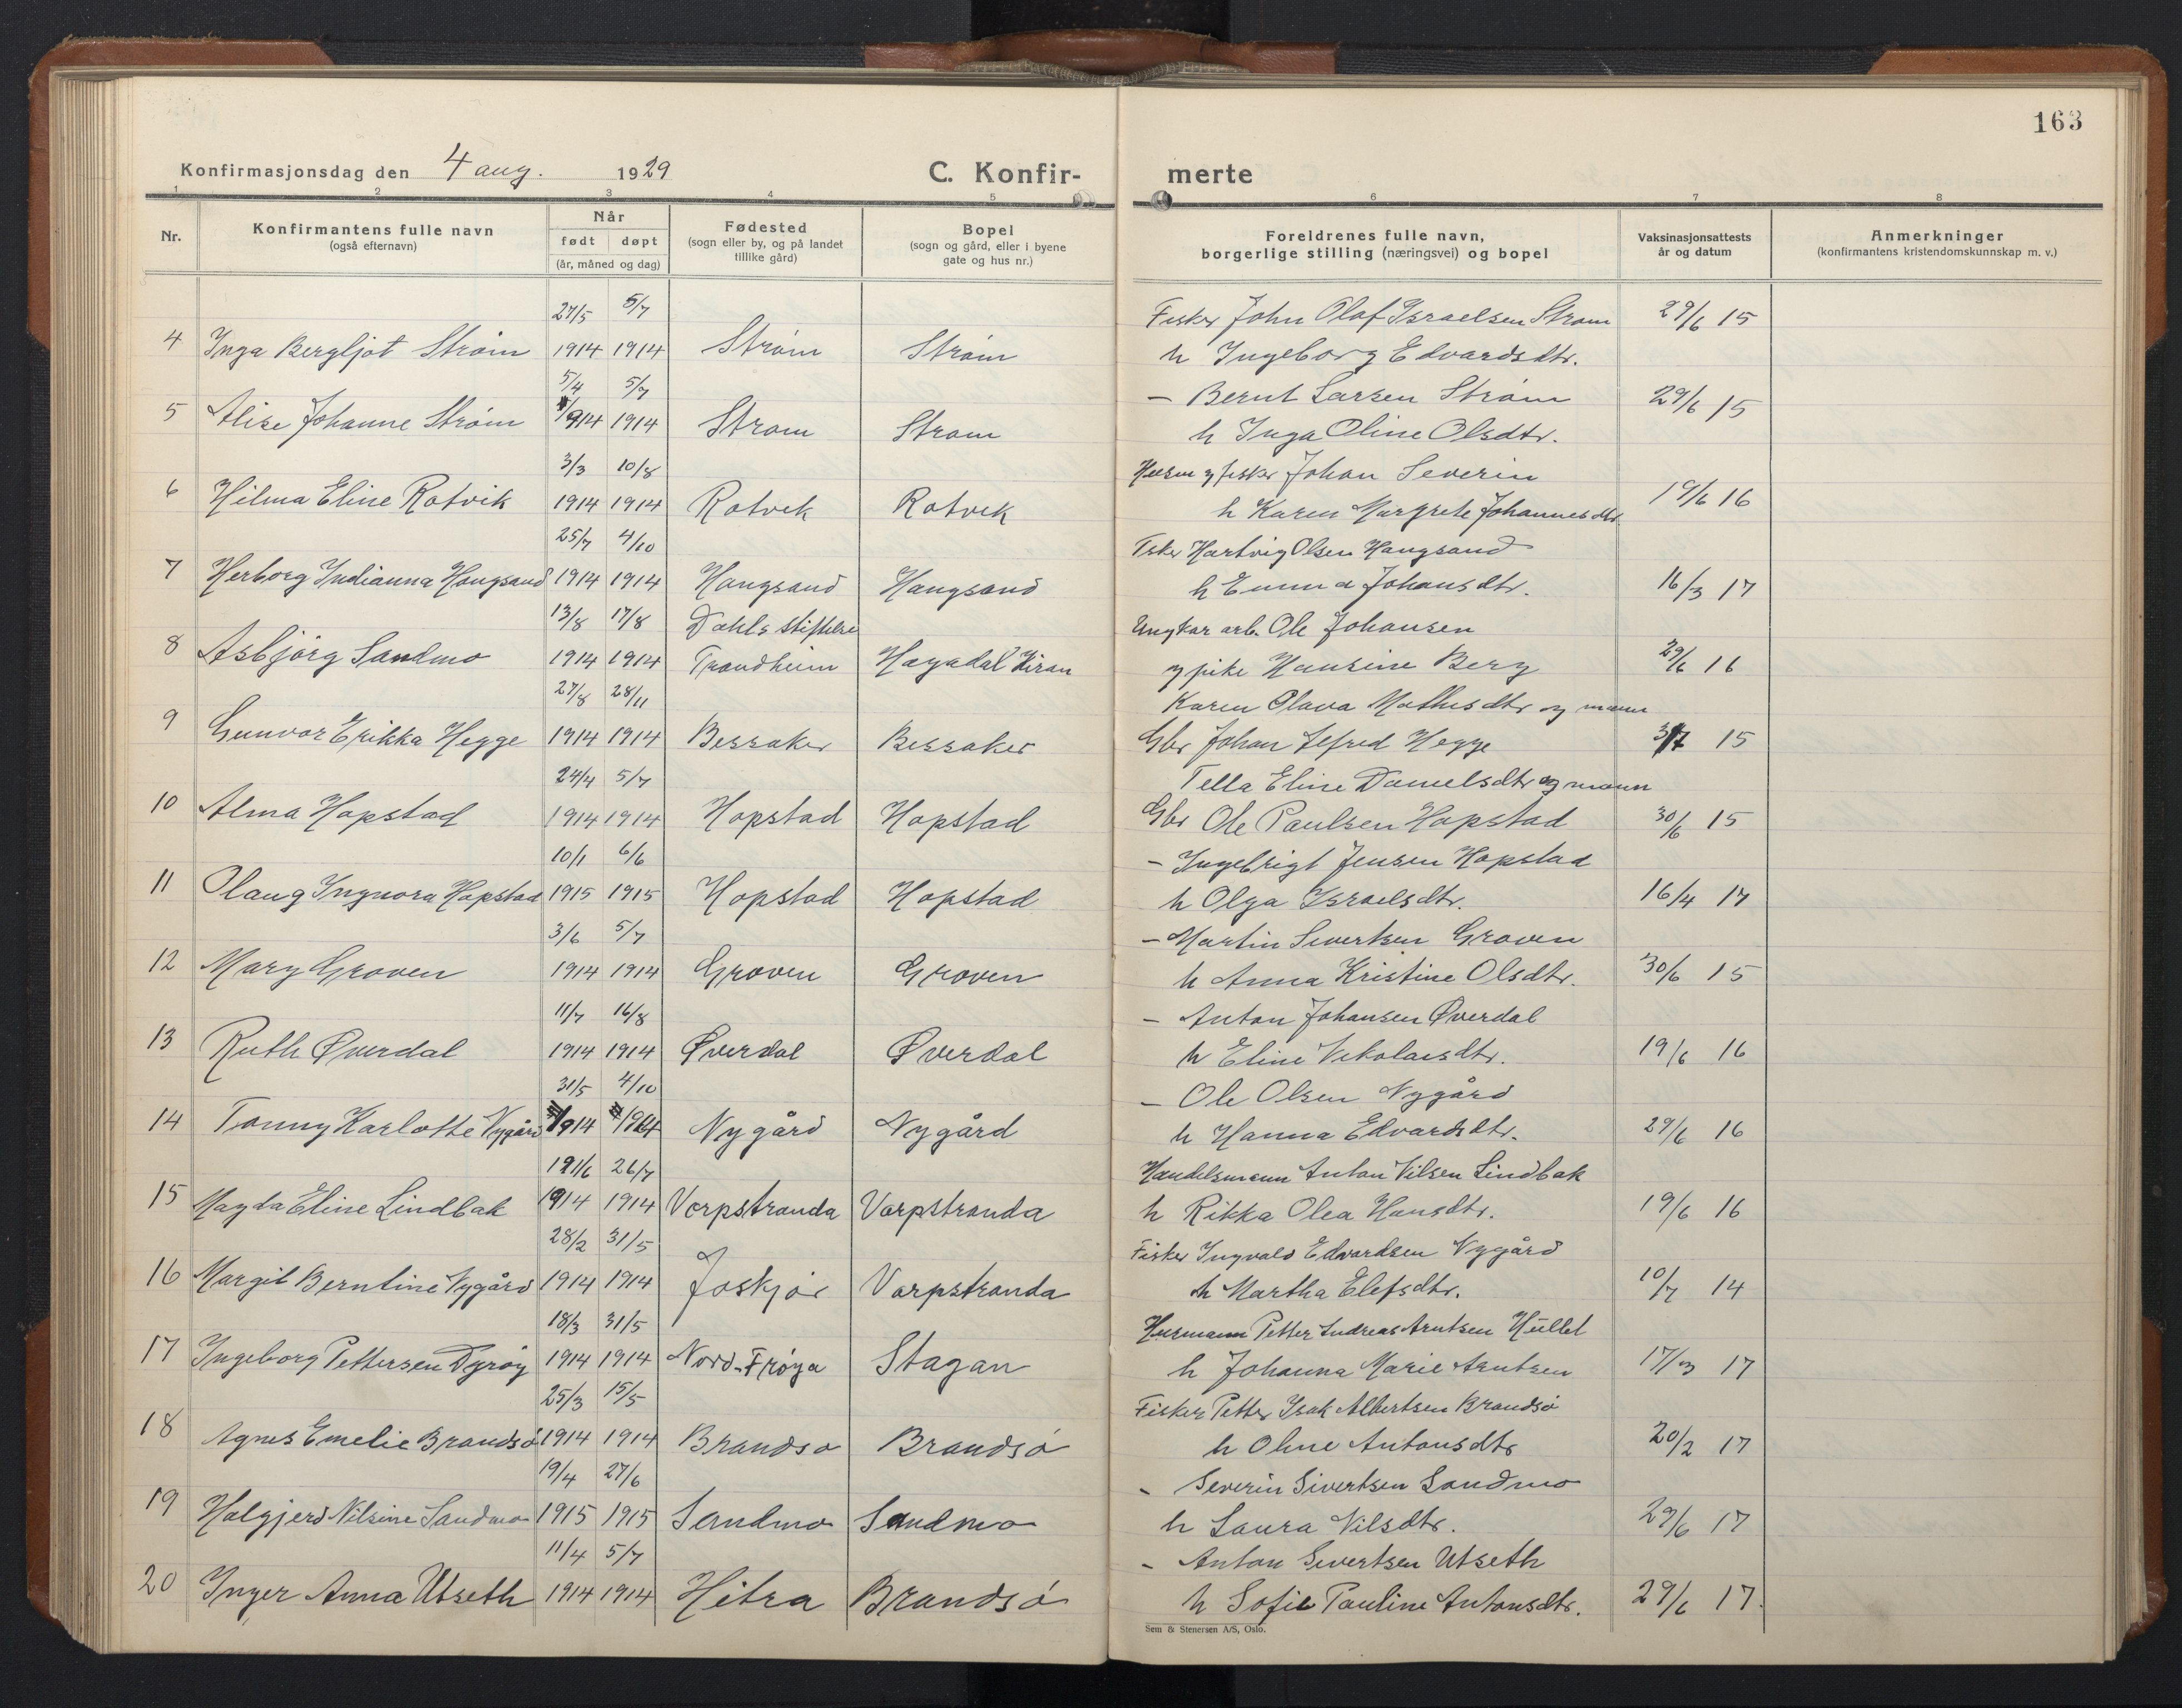 163
Konfirmasjonsdag den 4 aug. 1929 C. Konfir- merte
1 2 3 4 5 6 7 8
Nr. Konfirmantens fulle navn (også efternavn) Når født døpt (år, måned og dag) Fødested (sogn eller by, og på landet tillike gård) Bopel (sogn og gård, eller i byene gate og hus nr.) Foreldrenes fulle navn, borgerlige stilling (næringsvei) og bopel Vaksinasjonsattests år og datum Anmerkninger (konfirmantens kristendomskunnskap m. v.)
27/5 5/7 Fisker John Olaf Israelsen Strøm 29/6 15
4 Inga Bergljot Strøm 1914 1914 Strøm Strøm h Ingeborg Edvardsdtr.
5/4 5/7 – Bernt Larsen Strøm 29/6 15
5 Alise Johanne Strøm 1914 1914 Strøm Strøm h Inga Oline Olsdtr.
3/3 10/8 Husm og fisker Johan Severin
6 Hilma Eline Rotvik 1914 1914 Rotvik Rotvik h Karen Margrete Johannesdtr 19/6 16
25/7 4/10 Fisker Hartvig Olsen Hangsand
7 Herborg Indianna Hongsand 1914 1914 Hongsand Hangsand h Emma Johansdtr. 16/3 17
13/8 17/8 Dahls stiftelse Ungkar arb. Ole Johansen
8 Asbjörg Sandmo 1914 1914 Trondheim Hagadal Kiran og pike Hansine Berg 29/6 16
27/8 28/11 Karen Olava Mathisdtr og mann
9 Gunvor Erikka Hegge 1914 1914 Bessaker Bessaker Gbr Johan Alfred Hegge 3/7 15
24/4 5/7 Tella Eline Danielsdtr og mann
10 Alma Hopstad 1914 1914 Hopstad Hopstad Gbr Ole Paulsen Hopstad 30/6 15
10/1 6/6 – Ingebrigt Jensen Hopstad
11 Olaug Ingnora Hopstad 1915 1915 Hopstad Hopstad h Olga Israelsdtr. 16/4 17
3/6 5/7 – Martin Sivertsen Groven
12 Mary Groven 1914 1914 Groven Groven h Anna Kristine Olsdtr. 30/6 15
11/7 16/8 – Anton Johansen Øverdal
13 Ruth Øverdal 1914 1914 Øverdal Øverdal h Eline Nikolaisdtr. 19/6 16
31/5 4/10 – Ole Olsen Nygård
14 Tonny Karlotte Nygård 1914 1914 Nygård Nygård h Hanna Edvardsdtr. 29/6 16
19/6 26/7 Handelsmann Anton Nilsen Lindbak
15 Magda Eline Lindbak 1914 1914 Vorpstranda Vorpstranda h Rikka Olea Hansdtr. 19/6 16
28/2 31/5 Fisker Ingvald Edvardsen Nygård
16 Margit Berntine Nygård 1914 1914 Joskjør Vorpstranda h Martha Elefsdtr. 10/7 14
18/3 31/5 Husmann Petter Andreas Arntsen Hullet
17 Ingeborg Pettersen Dyrøy 1914 1914 Nord-Frøya Stagan h Johanna Marie Arntsen 17/3 17
25/3 15/5 Fisker Petter Isak Albertsen Brandsø
18 Agnes Emelie Brandsø 1914 1914 Brandsø Brandsø h Oline Antonsdtr 20/2 17
19/4 27/6 – Severin Sivertsen Sandmo
19 Holgjerd Nilsine Sandmo 1915 1915 Sandmo Sandmo h Laura Nilsdtr. 29/6 17
11/4 5/7 – Anton Sivertsen Utseth
20 Inger Anna Utseth 1914 1914 Hitra Brandsø h Sofie Pauline Antonsdtr. 29/6 17.
Sem & Stenersen A/S, Oslo.